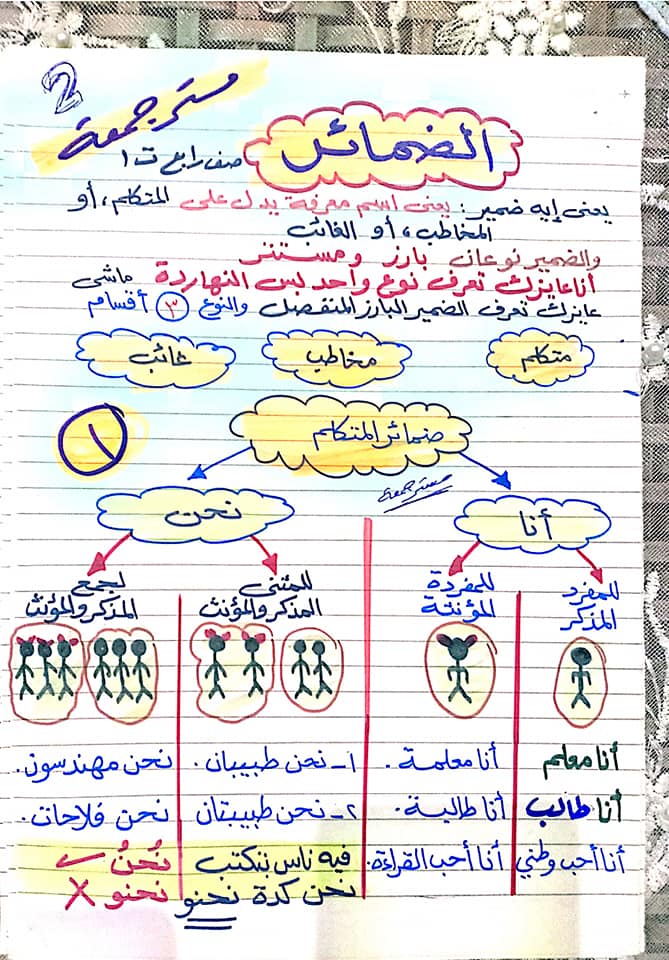 2
مستر جمعة
الضمائر
صف رابع ت ١
يعنى إيه ضمير : يعنى اسم معرفة يدل على المتكلم، أو
المخاطب، أو الغائب
والضمير نوعان بارز ومستتر
أنا عايزك تعرف نوع واحد بس النهاردة ماشى
عايزك تعرف الضمير البارز المنفصل والنوع ٣ أقسام
متكلم مخاطب غائب
١
ضمائر المتكلم
مستر جمعة
أنا نحن
للمفرد المذكر
للمفردة المؤنثة
للمثنى المذكر والمؤنث
لجمع المذكر والمؤنث
أنا معلم أنا معلمة . ١- نحن طبيبان . نحن مهندسون .
أنا طالب أنا طالبة . ٢- نحن طبيبتان نحن فلاحات .
أنا أحب وطني أنا أحب القراءة . فيه ناس بتكتب نحنُ ✓
نحن كدة نحنو نحنو X